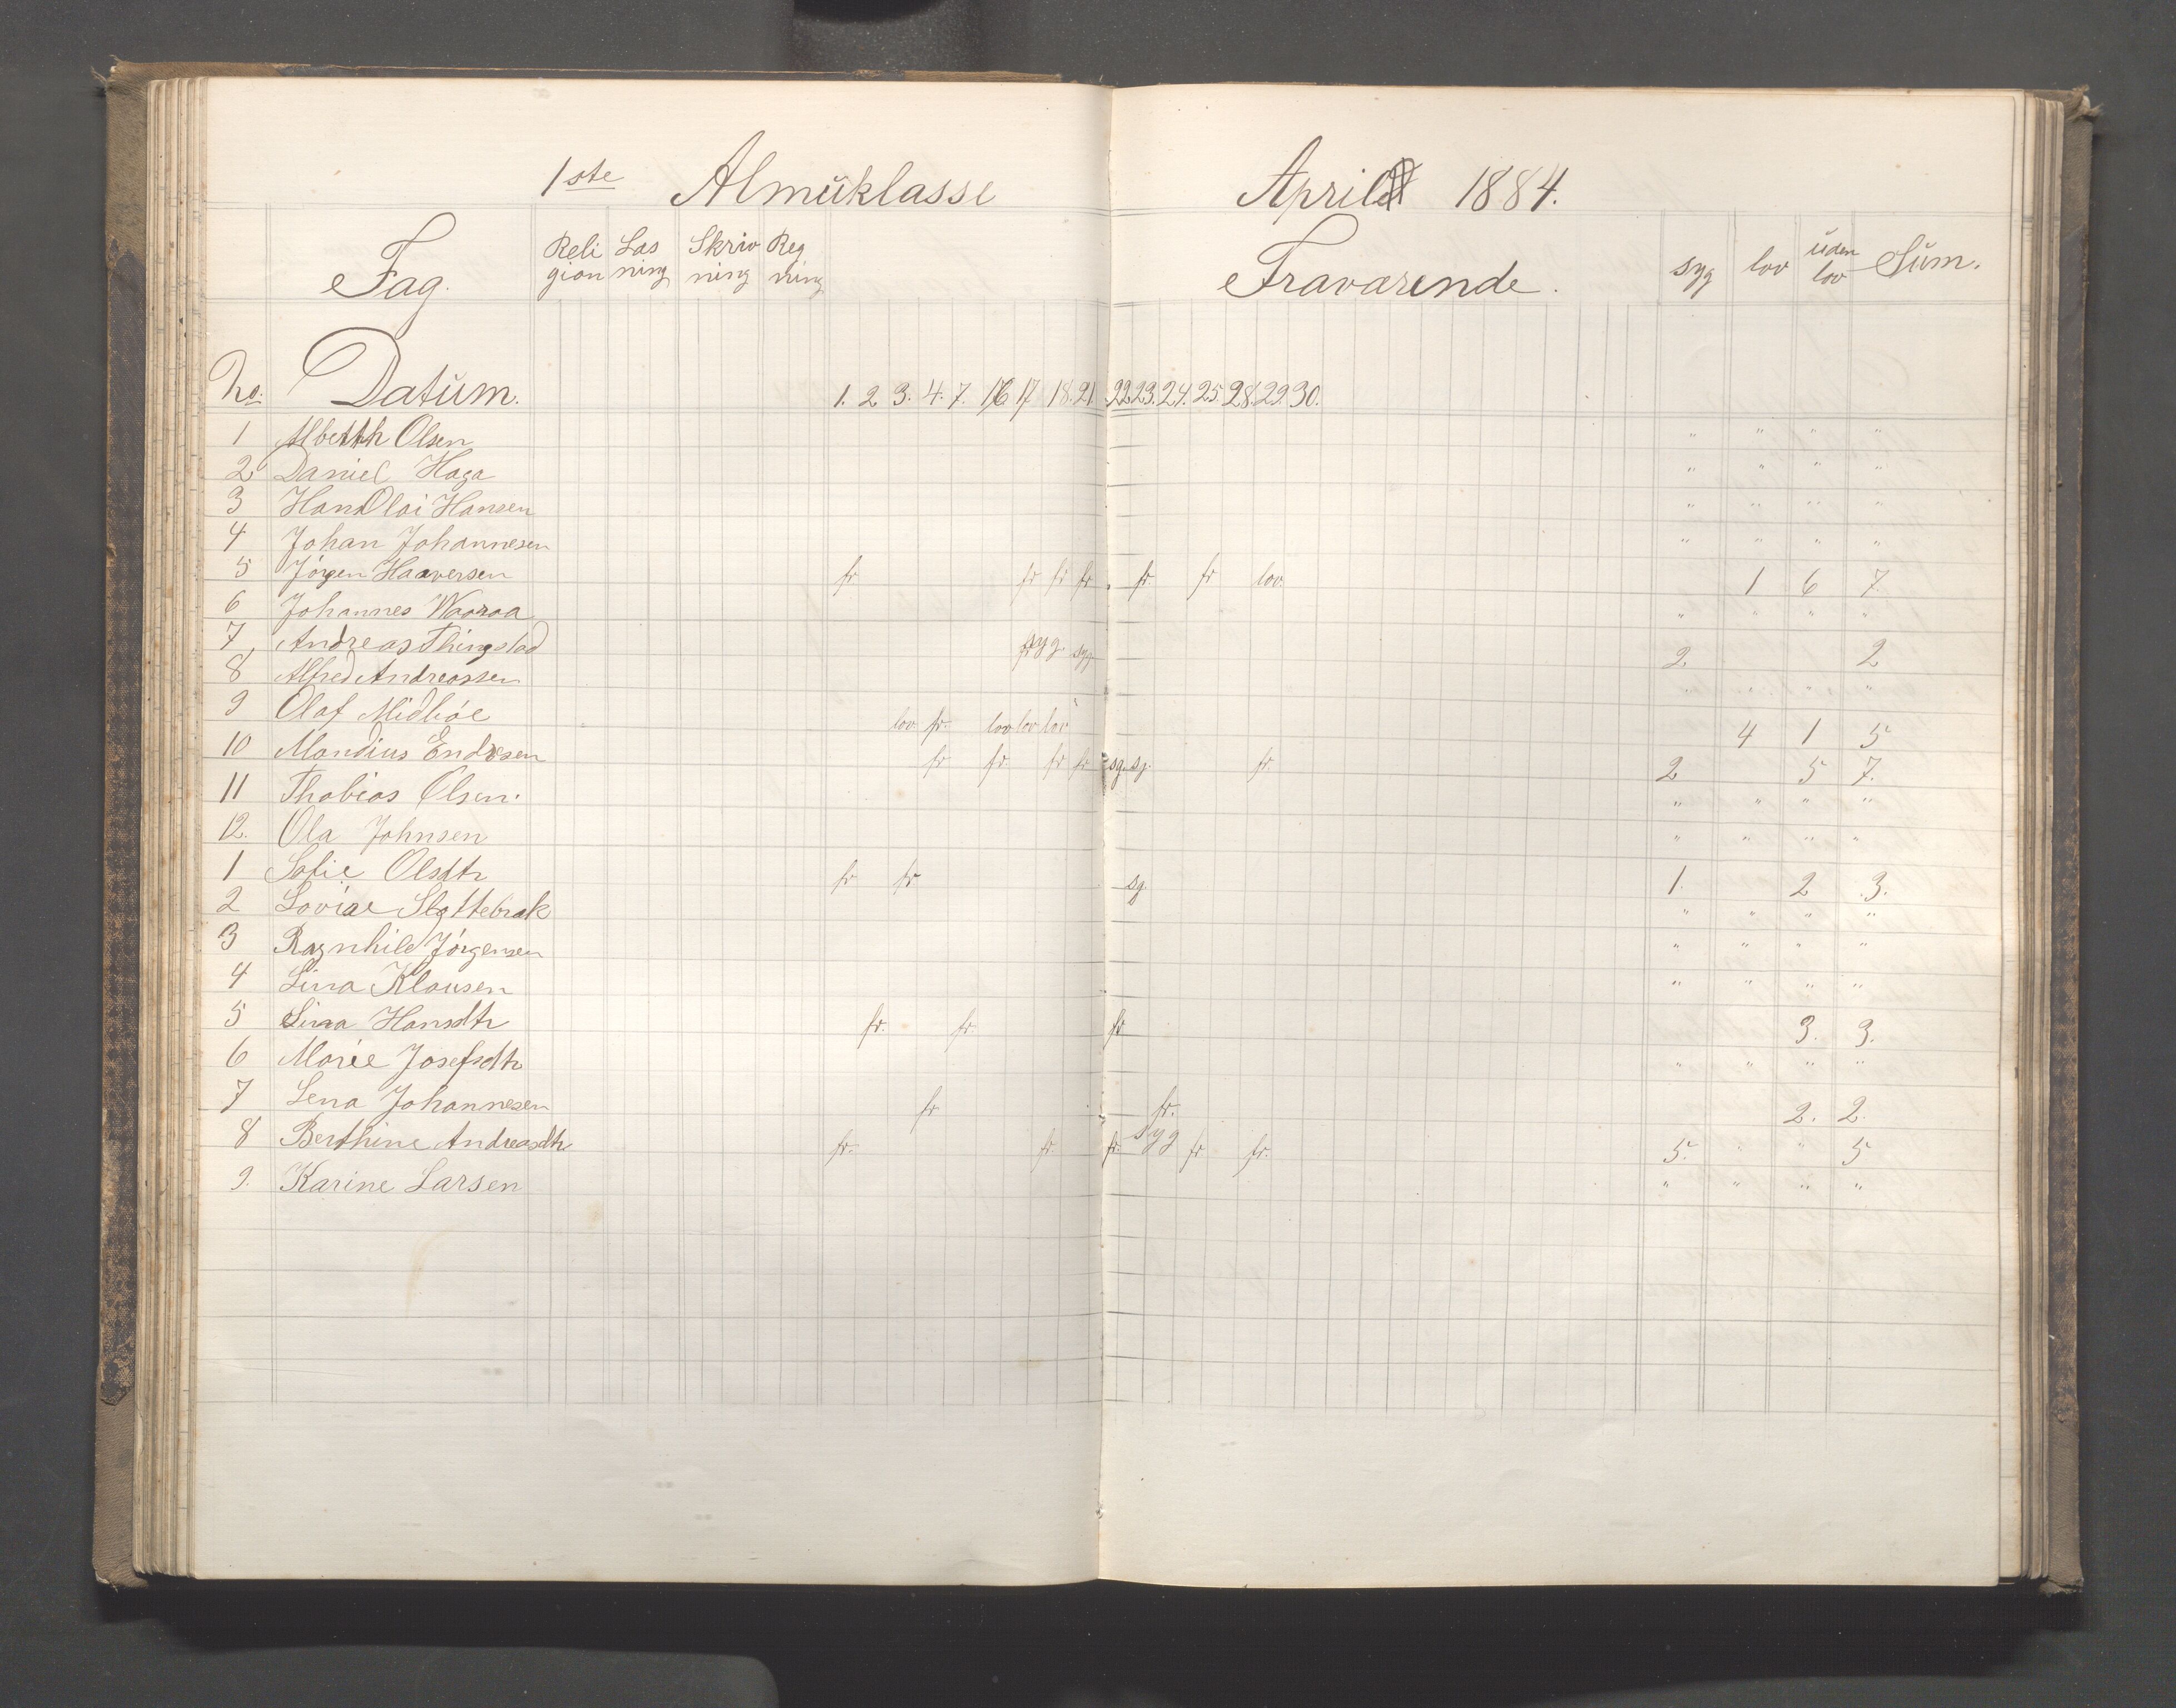 1ste Almüklasse April 1884.
Fag. Reli gion Las ning Skriv ning Reg ning Fravarende. syg lov üden lov Süm.
No. Datüm. 1. 2 3. 4. 7. 16 17 18. 21. 22. 23. 24. 25. 28. 29. 30.
1 Alberth Olsen " " " "
2 Daniel Haga " " " "
3 Hans Olai Hansen " " " "
4 Johan Johannesen " " " "
5 Jörgen Haaversen fr fr fr fr fr. fr lov. 1 6 7.
6 Johannes " " " "
7 Andreas Thingstad syg. syg. 2 2
8 Alfred Andreassen " " " "
9 Olaf Midböe lov. fr. lov lov lov 4 1 5
10 Mandius Endresen fr fr. fr fr sg. sg. fr. 2 5 7.
11 Thobias Olsen. " " " "
12. Ola Johnsen " " " "
1 Sofie Olsdtr fr fr sg. 1. 2 3.
2 Lovise Slettebrak " " " "
3 Ragnhild Jörgensen " " " "
4 Lina Klausen " " " "
5 Lina Hansdtr fr. fr. fr 3. 3.
6 Marie Josefsdtr " " " "
7 Lena Johannesen fr fr. 2. 2.
8 Berthine Andreasdtr fr. fr. fr. syg fr fr. 5. " " 5
9. Karine Larsen " " " "